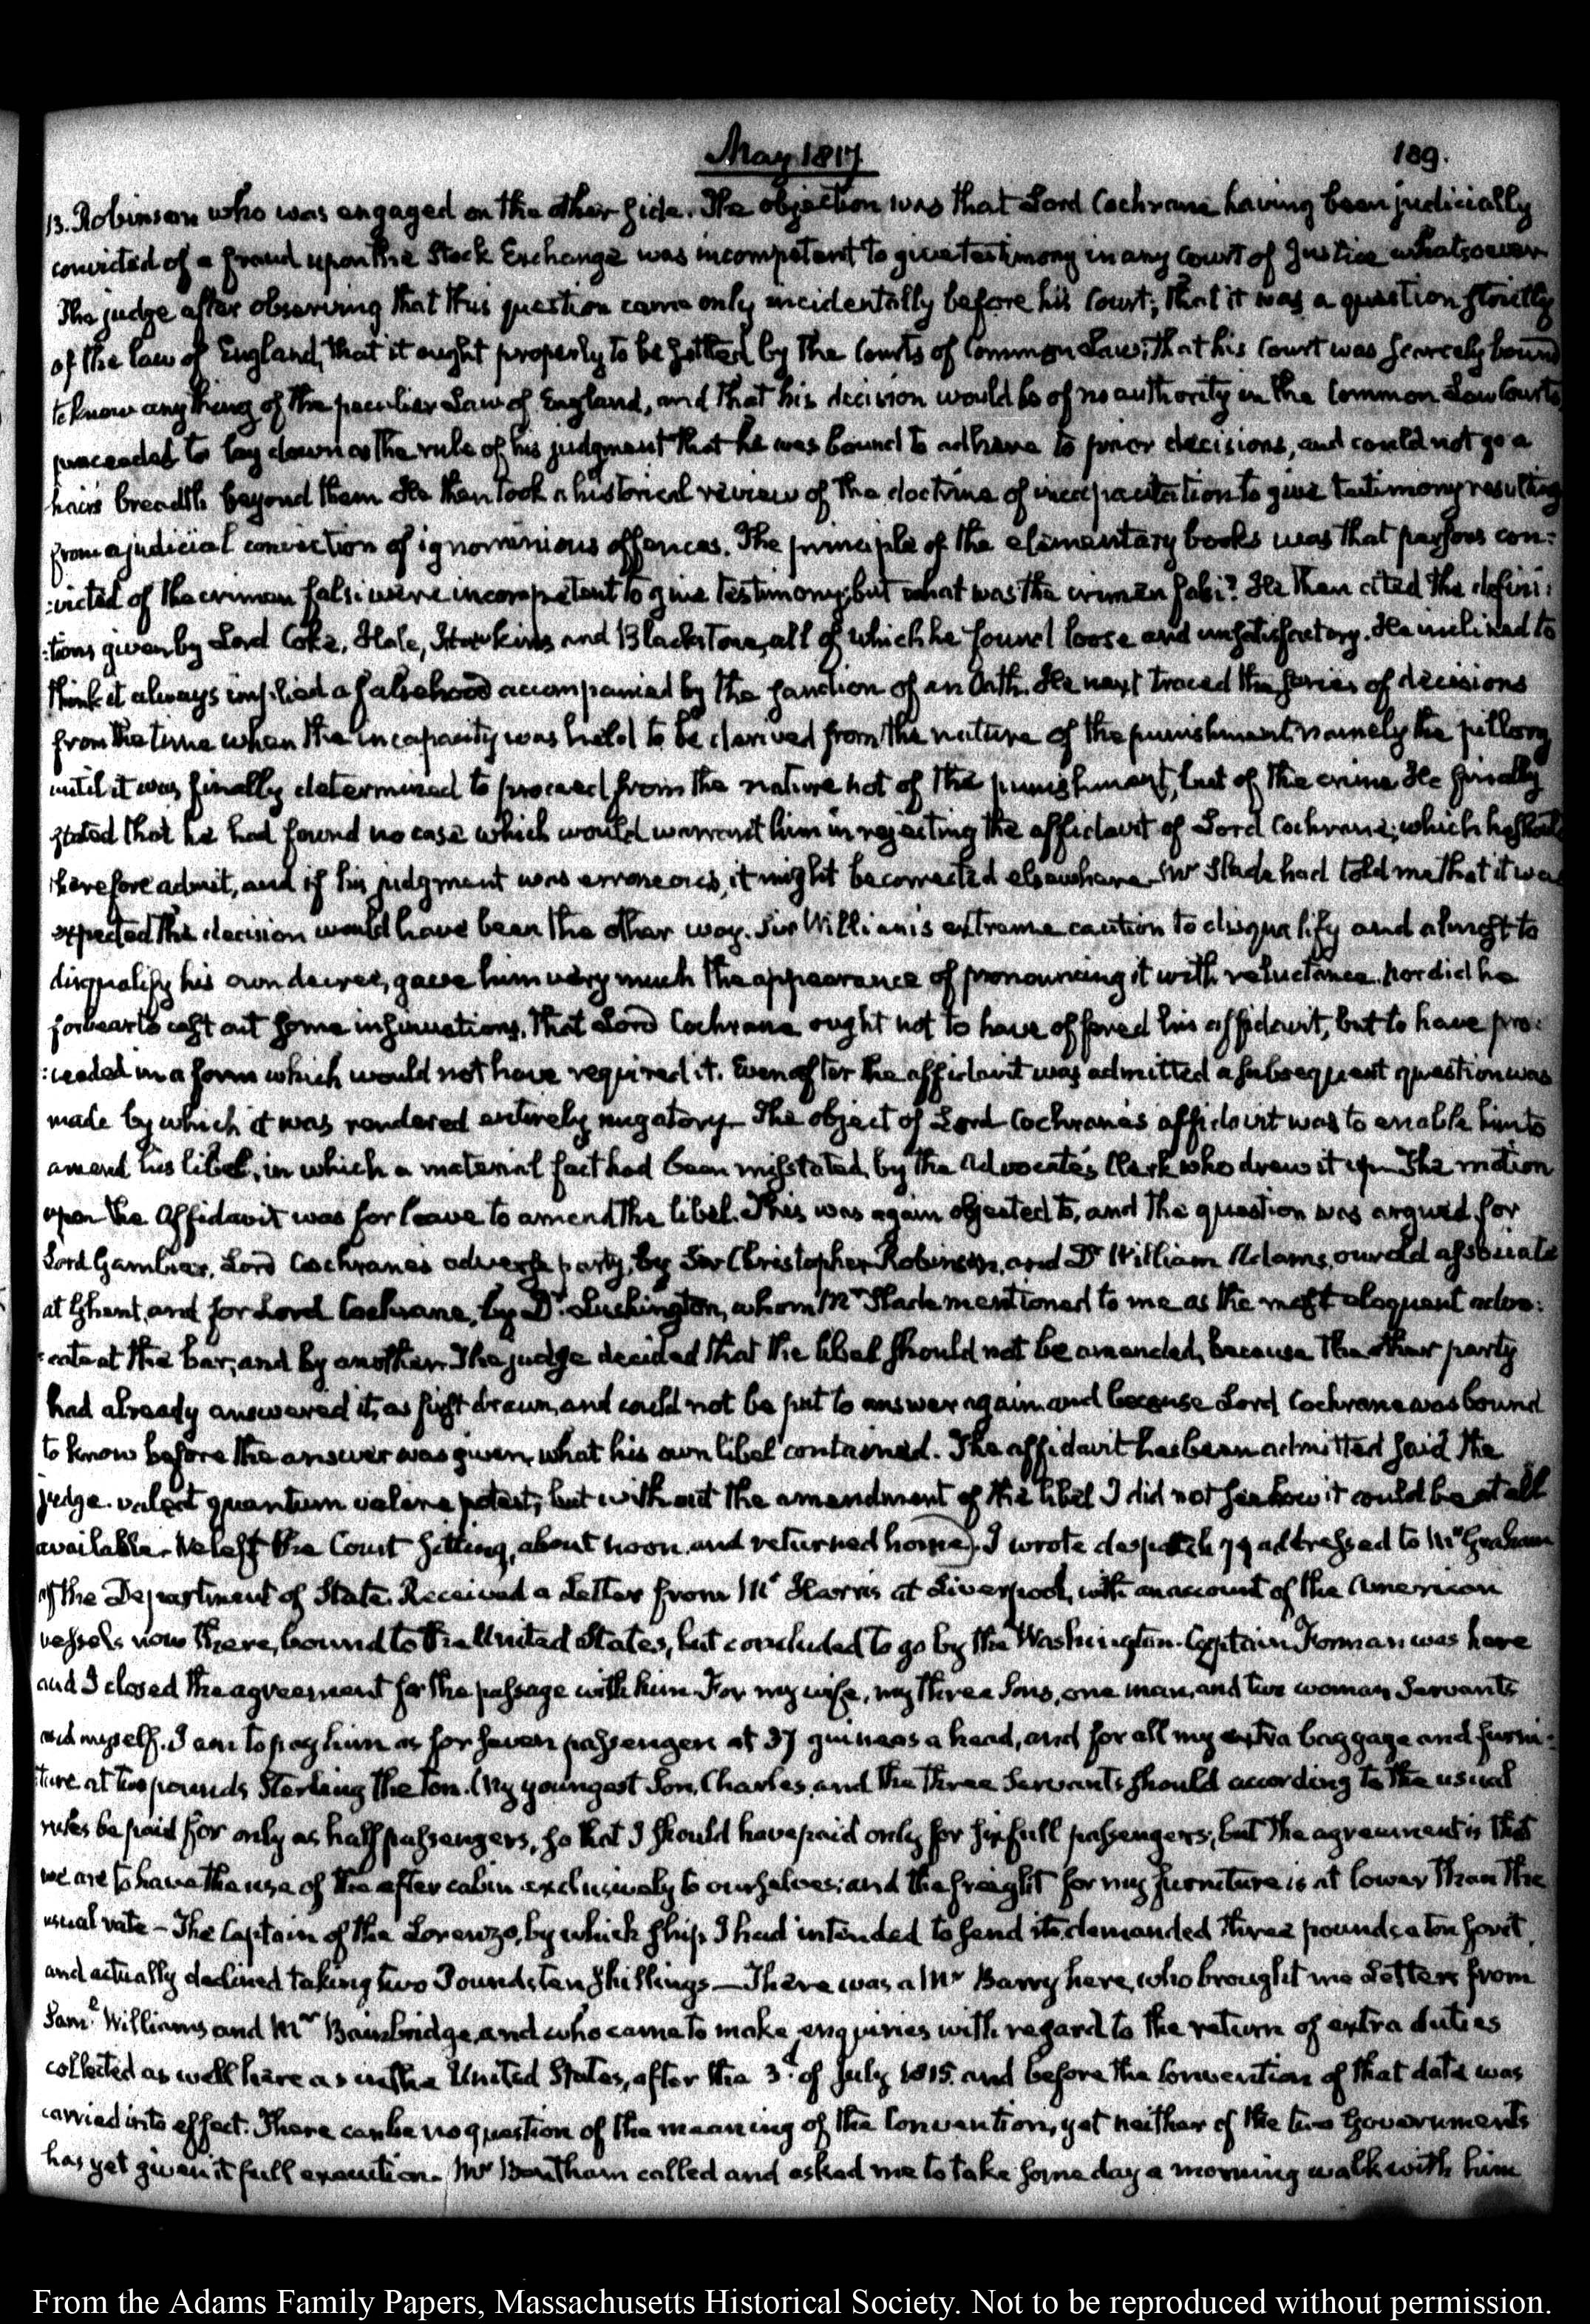 May 1817.
189.
13. Robinson who was engaged on the other side. The objection was that Lord Cochrane having been judicially
convicted of a fraud upon the Stock Exchange was incompetent to give testimony in any Court of Justice whatsoever
The judge after observing that this question came only incidentally before his Court; that it was a question strictly
of the law of England, that it ought properly to be settled by the Courts of Common Law; that his Court was scarcely bound
to know any thing of the peculiar Law of England, and that his decision would be of no authority in the Common Law Courts,
proceeded to lay down as the rule of his judgment that he was bound to adhere to prior decisions, and could not go a
hair's breadth beyond them. He then took a historical review of the doctrine of incapacitation to give testimony resulting
from a judicial conviction of ignominious offences. The principle of the elementary books was that persons con:
:victed of the crimen falsi were incompetent to give testimony; but what was the crimen falsi? He then cited the defini:
:tions given by Lord Coke, Hale, Hawkins and Blackstone, all of which he found loose and unsatisfactory. He inclined to
think it always implied a falsehood accompanied by the sanction of an Oath. He next traced the series of decisions
from the time when the incapacity was held to be derived from the nature of the punishment, namely the pillory
until it was finally determined to proceed from the nature not of the punishment, but of the crime. He finally
stated that he had found no case which would warrant him in rejecting the affidavit of Lord Cochrane; which he should
therefore admit, and if his judgment was erroneous, it might be corrected elsewhere. Mr Slade had told me that it was
expected the decision would have been the other way. Sir William's extreme caution to disqualify and almost to
disqualify his own decree, gave him very much the appearance of pronouncing it with reluctance. nor did he
forbear to cast out some insinuations, that Lord Cochrane ought not to have offered his affidavit, but to have pro:
:ceeded in a form which would not have required it. Even after the affidavit was admitted a subsequent question was
made by which it was rendered entirely nugatory— The object of Lord Cochrane's affidavit was to enable him to
amend his libel, in which a material fact had been misstated by the Advocate's Clerk who drew it up— The motion
upon the Affidavit was for leave to amend the libel. This was again objected to, and the question was argued for
Lord Gambier, Lord Cochrane's adverse party, by Sir Christopher Robinson, and Dr William Adams, our old associate
at Ghent, and for Lord Cochrane, by Dr Lushington, whom Mr Slade mentioned to me as the most eloquent advo:
:cate at the bar; and by another. The judge decided that the libel should not be amended, because the other party
had already answered it, as first drawn, and could not be put to answer again, and because Lord Cochrane was bound
to know before the answer was given, what his own libel contained. The affidavit has been admitted said the
judge. valeat quantum valere potest; but without the amendment of the libel I did not see how it could be at all
available. We left the Court sitting, about noon, and returned home. I wrote despatch 79 addressed to Mr Graham
of the Department of State. Received a Letter from Mr Harris at Liverpool, with an account of the American
vessels now there, bound to the United States, but concluded to go by the Washington. Captain Forman was here
and I closed the agreement for the passage with him. For my wife, my three Sons, one man, and two woman Servants
and myself. I am to pay him as for seven passengers at 37 guineas a head, and for all my extra baggage and furni:
:ture at two pounds Sterling the ton. (My youngest Son, Charles, and the three Servants should according to the usual
rules be paid for only as half passengers, so that I should have paid only for six full passengers; but the agreement is that
we are to have the use of the after cabin exclusively to ourselves; and the freight for my furniture is at lower than the
usual rate— The Captain of the Lorenzo, by which ship I had intended to send it, demanded three pounds a ton for it,
and actually declined taking two Pounds ten shillings— There was a Mr Barry here, who brought me Letters from
Saml Williams and Mr Bainbridge, and who came to make enquiries with regard to the return of extra duties
collected as well here as in the United States, after the 3d of July 1815. and before the Convention of that date was
carried into effect. There can be no question of the meaning of the Convention, yet neither of the two Governments
has yet given it full execution. Mr Bentham called and asked me to take some day a morning walk with him
From the Adams Family Papers, Massachusetts Historical Society. Not to be reproduced without permission.